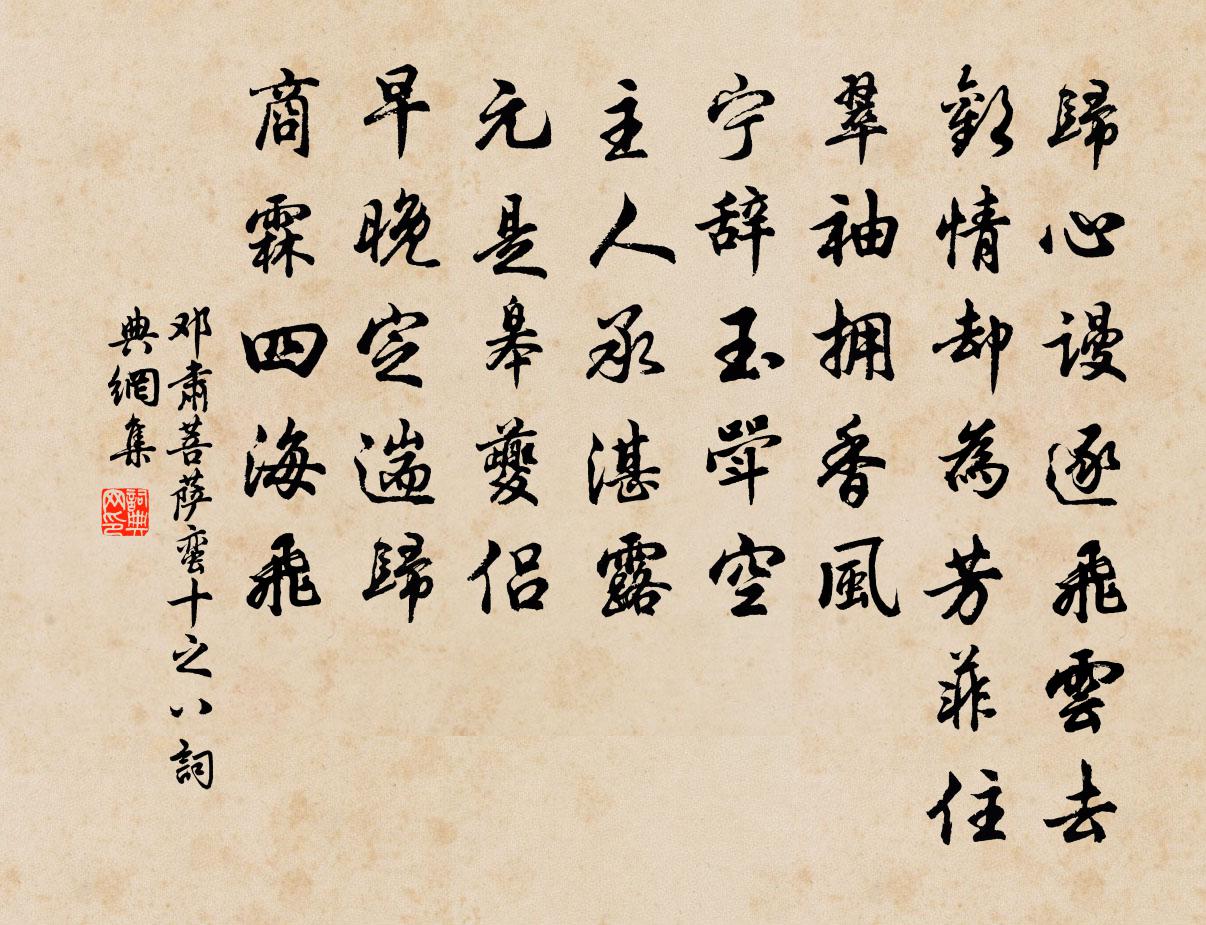 歸心謾逐飛雲去
歡情却為芳菲住
翠袖拥香風
宁辞玉斝空
主人承湛露
元是皋夔侣
早晚定遄歸
商霖四海飛
邓肅菩萨蛮十之八詞
典網集
詞典网印